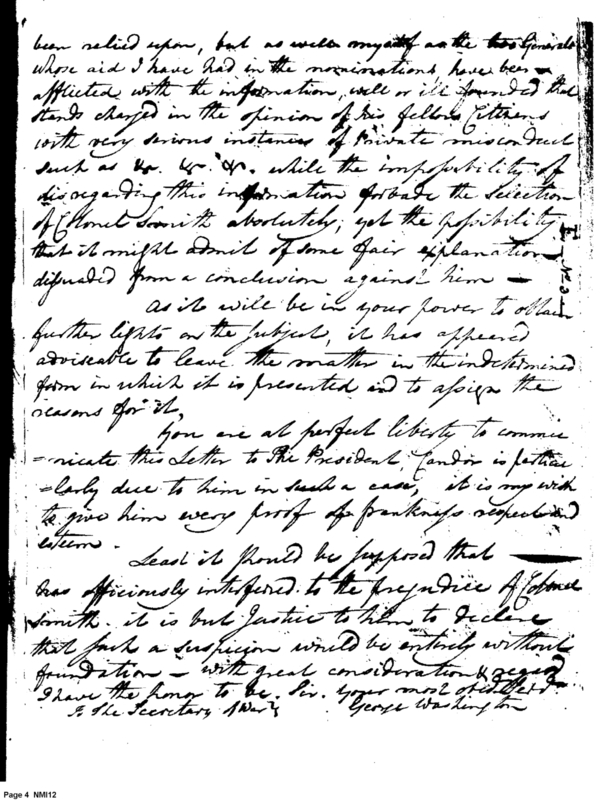 been relied upon, but as well myself as the two Generals
whose aid I have had in the nominations have been
afflicted with the information, well or ill founded that
stands charged in the opinion of his fellow Citizens
with very serious instances of Private misconduct
such as &c. &c. &c. while the impossibility of
disregarding this information forbade the Selection
of Colonel Smith absolutely; yet the possibility
that it might admit of some fair explanation
dissuaded from a conclusion against him —
As it will be in your power to obtain
further lights on the Subject, it has appeared
adviseable to leave the matter in the indetermined
form in which it is presented and to assign the
reasons for it,
You are at perfect liberty to commu
=nicate this Letter to The President, Candor is particu
=larly due to him in such a case, it is my wish
to give him every proof of frankness respect and
esteem.
Least it should be supposed that ———
has officiously interfered to the prejudice of Colonel
Smith. it is but Justice to him to declare
that such a suspicion would be entirely without
foundation — with great consideration & regard
I have the honor to be. Sir. Your most obedt
To The Secretary of War
George Washington
Page 4 NMI12